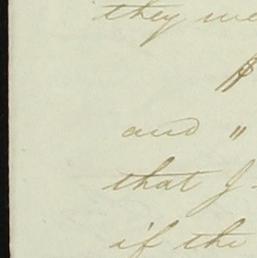 they we
$
and "
that J
if the